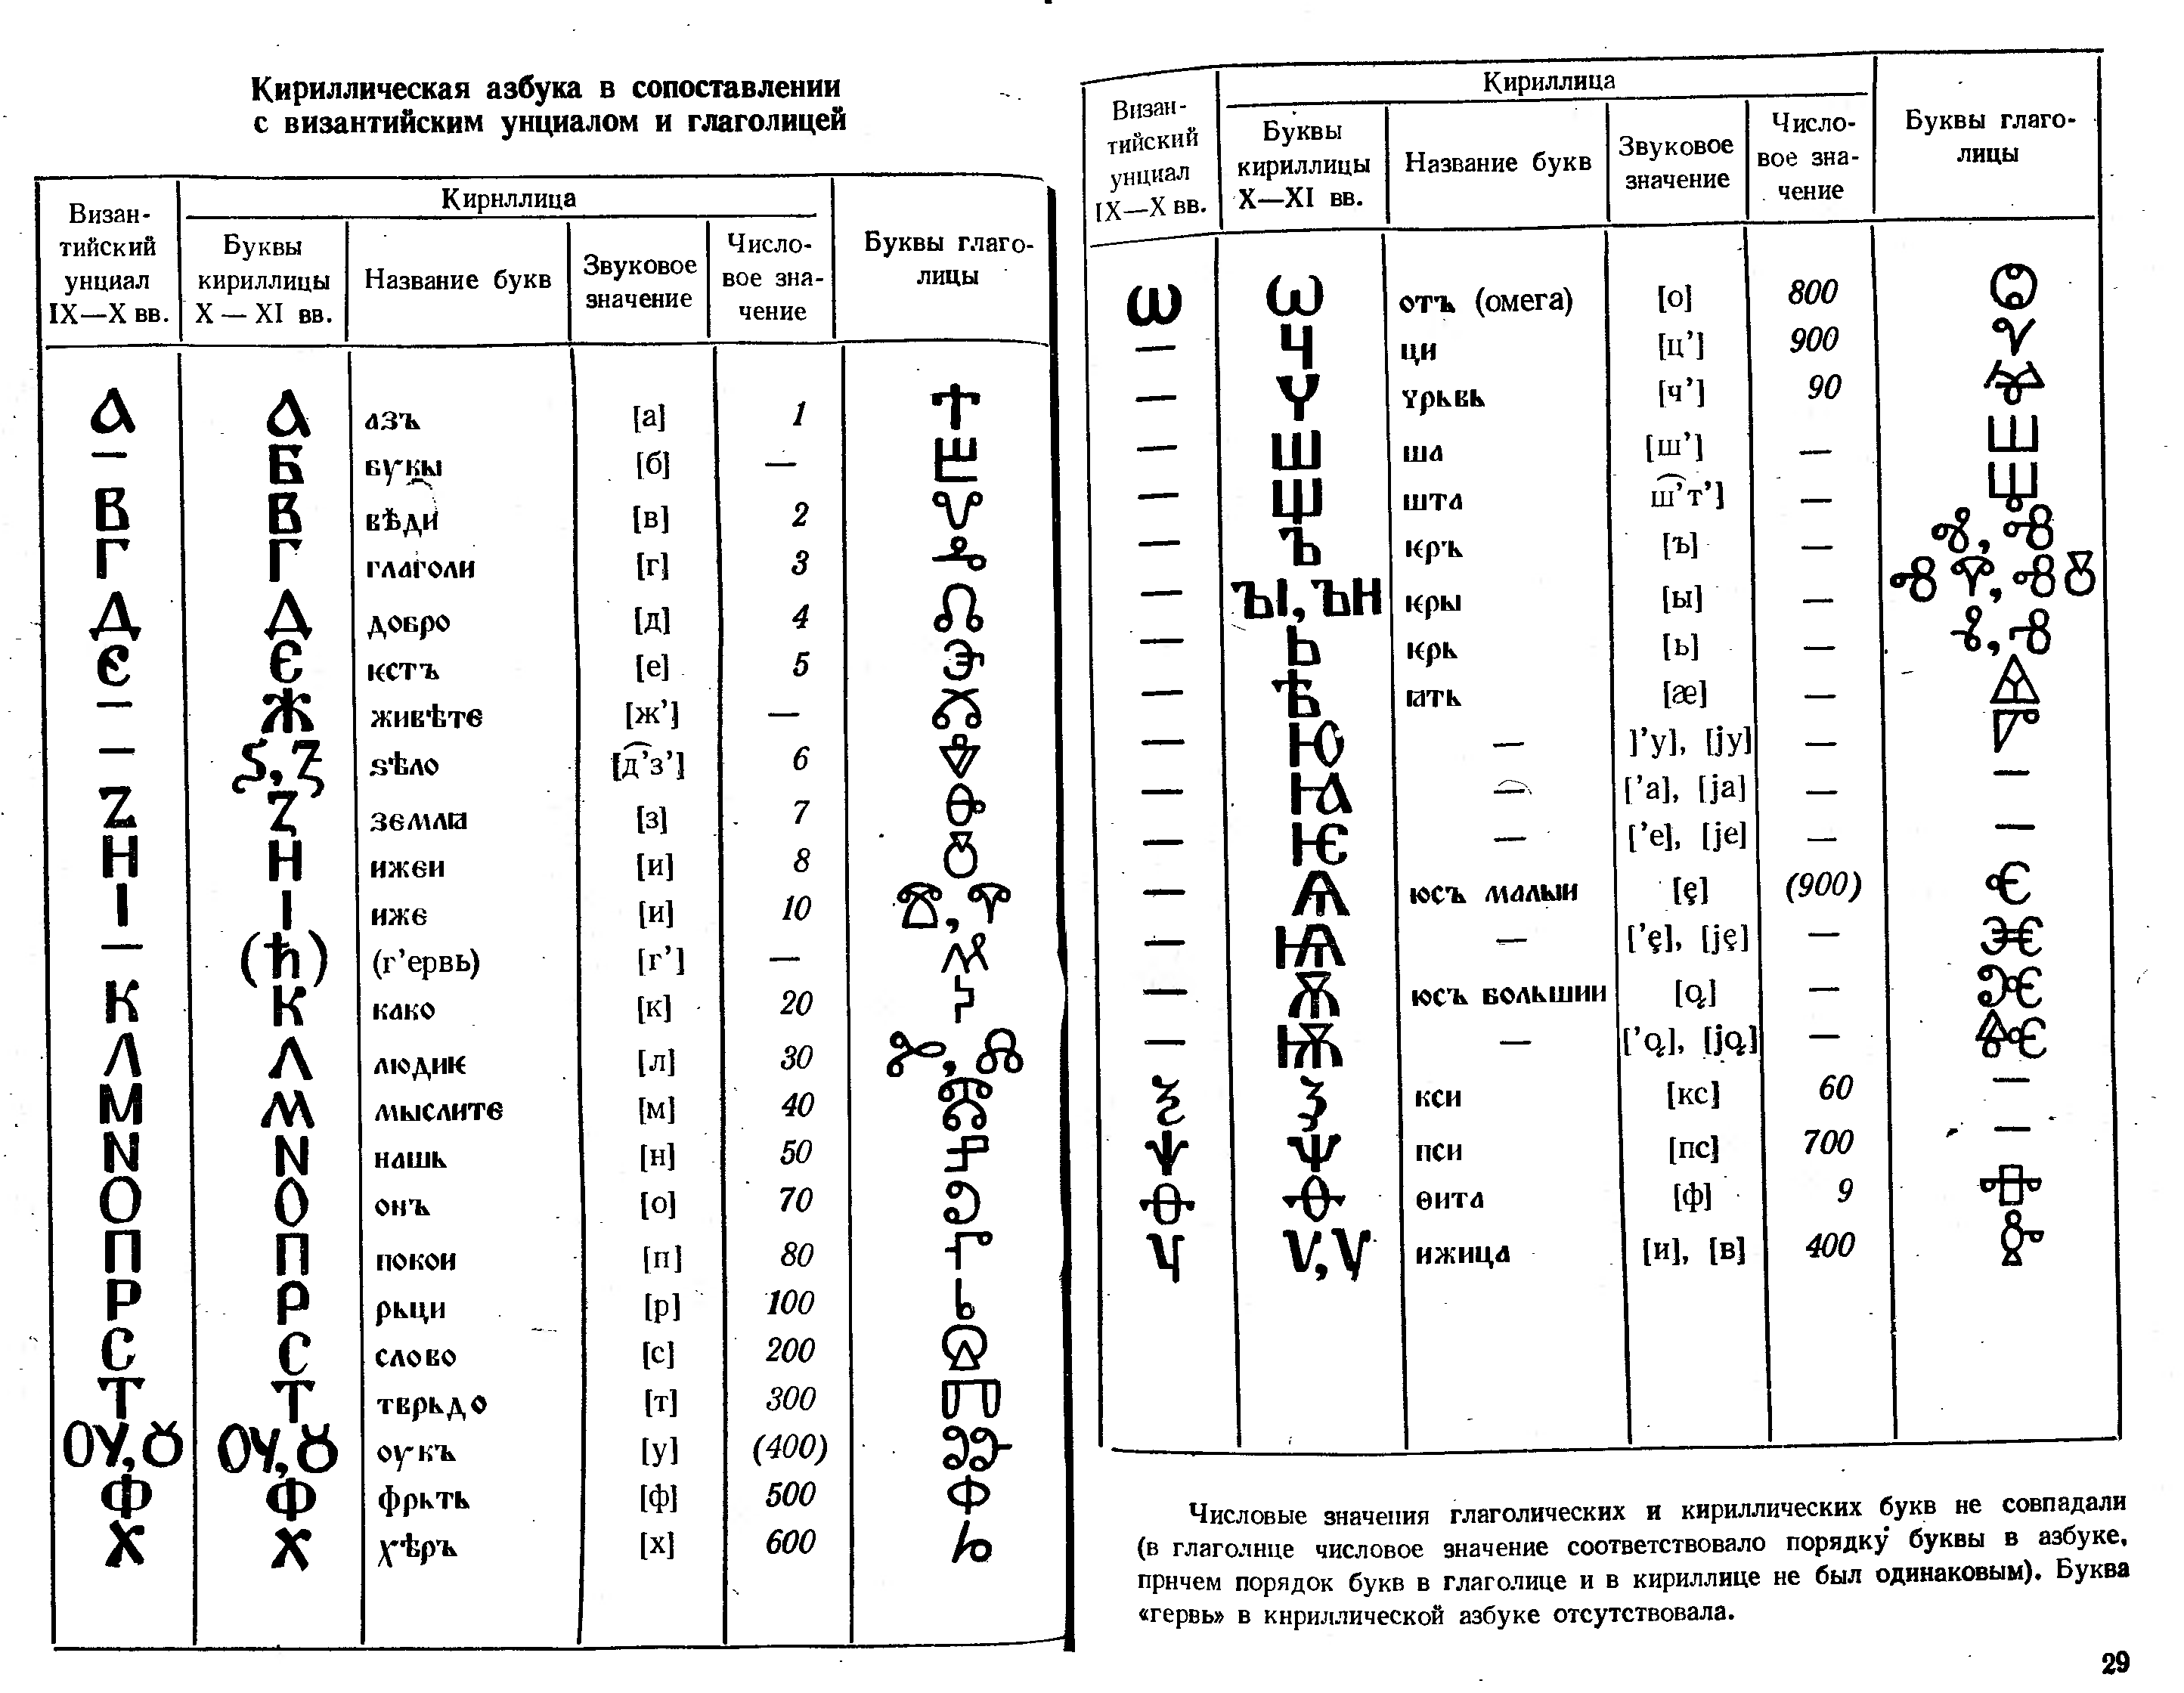 Кириллическая азбука в сопоставлении
с византийским унциалом и глаголицей
Визан-
тийский
унциал
IX—X вв.
Кириллица
Буквы
кириллицы
X — XI вв.
Название букв
Звуковое
значение
Число-
вое зна-
чение
Буквы глаго-
лицы
А А азъ [а] 1 Ⰰ
— Б букы [б] — Ⰱ
В В вѣди [в] 2 Ⰲ
Г Г глаголи [г] 3 Ⰳ
Д Д добро [д] 4 Ⰴ
Є Є ѥстъ [е] 5 Ⰵ
— Ж живѣте [ж’] — Ⰶ
— Ѕ, Ꙃ ѕѣло [д͡’з’] 6 Ⰷ
Z Ꙁ земліа [з] 7 Ⰸ
Н Н ижеи [и] 8 Ⰹ
І І иже [и] 10 Ⰺ, Ⰻ
— (Ћ) (г’ервь) [г’] — Ⰼ
К К како [к] 20 Ⰽ
Л Л людиѥ [л] 30 Ⰾ
М М мыслите [м] 40 Ⰿ
N N нашь [н] 50 Ⱀ
О О онъ [о] 70 Ⱁ
П П покои [п] 80 Ⱂ
Р Р рьци [р] 100 Ⱃ
С С слово [с] 200 Ⱄ
Т Т тврьдо [т] 300 Ⱅ
ОУ, Ꙋ ОУ, Ꙋ оукъ [у] (400) Ⱆ
Ф Ф фрьть [ф] 500 Ⱇ
Х Х хѣръ [х] 600 Ⱈ
Визан-
тийский
унциал
IX—X вв.
Кириллица
Буквы
кириллицы
X—XI вв.
Название букв
Звуковое
значение
Число-
вое зна-
чение
Буквы глаго-
лицы
Ѡ Ѡ отъ (омега) [о] 800 Ⱉ
— Ц ци [ц’] 900 Ⱌ
— Ч чрьвь [ч’] 90 Ⱍ
— Ш ша [ш’] — Ⱎ
— Щ шта ш͡’т’] — Ⱋ
— Ъ ѥръ [ъ] — Ⱏ
— ЪІ, ЪН ѥры [ы] — ⰟⰊ, ⰟⰉ
— Ь ѥрь [ь] — Ⱐ
— Ѣ ꙗть [æ] — Ⱑ
— Ю — ]’у], [jу] — Ⱓ
— Ꙗ — [’а], [jа] — —
— Ѥ — [’е], [jе] — —
— Ѧ юсъ малыи [ę] (900) Ⱔ
— Ѩ — [’ę], [ję] — Ⱗ
— Ѫ юсъ большии [ǫ] — Ⱘ
— Ѭ — [’ǫ], [jǫ] — Ⱙ
Ѯ Ѯ кси [кс] 60 —
Ѱ Ѱ пси [пс] 700 —
Ѳ Ѳ ѳита [ф] 9 Ⱚ
Ч Ѵ, У ижица [и], [в] 400 Ⱛ
Числовые значения глаголических и кириллических букв не совпадали
(в глаголице числовое значение соответствовало порядку буквы в азбуке,
причем порядок букв в глаголице и в кириллице не был одинаковым). Буква
«гервь» в кириллической азбуке отсутствовала.
29